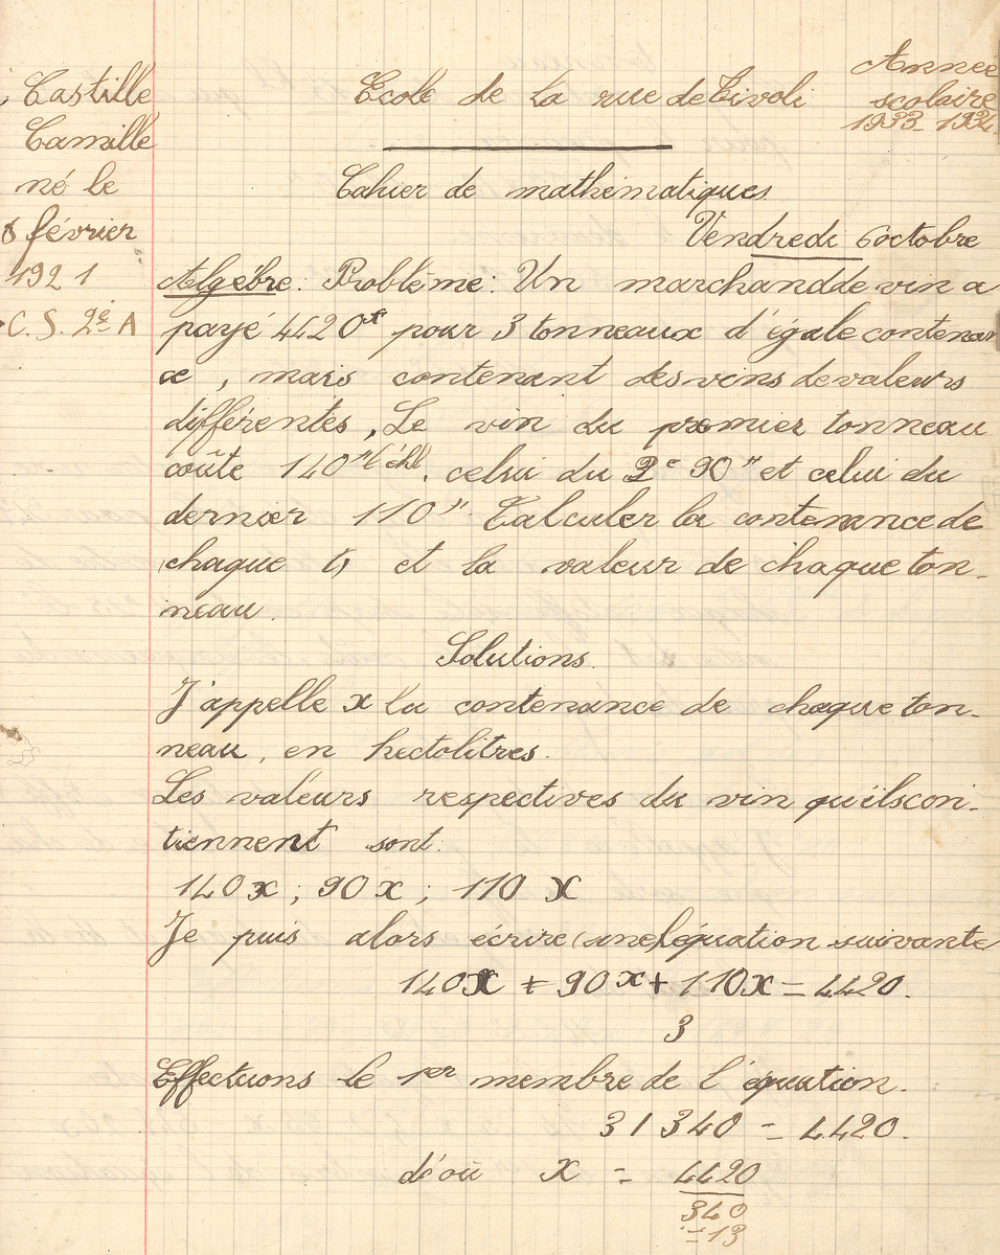 Année
scolaire
1933-1934
Castille
Camille
né le
8 février
1921
C. S. 2e A
Ecole de la rue de Tivoli
Cahier de mathématiques
Vendredi 6 octobre
Algébre : Problème : Un marchand de vin a
payé 4420f pour 3 tonneaux d'égale contenan
ce, mais contenant des vins de valeurs
différentes, Le vin du premier tonneau
coûte 140" l'hl. celui du 2e 90" et celui du
dernier 110" Calculer la contenance de
chaque t, et la valeur de chaque ton-
neau.
Solutions.
J'appelle x la contenance de chaque ton-
neau, en hectolitres.
Les valeurs respectives du vin qu'ils con-
tiennent sont:
140x ; 90x ; 110 x
Je puis alors écrire (une) l'équation suivante
140x + 90x + 110x = 4420.
3
Effectuons le 1er membre de l'équation.
3 / 340 = 4420.
d'où x = 4420
340
= 13